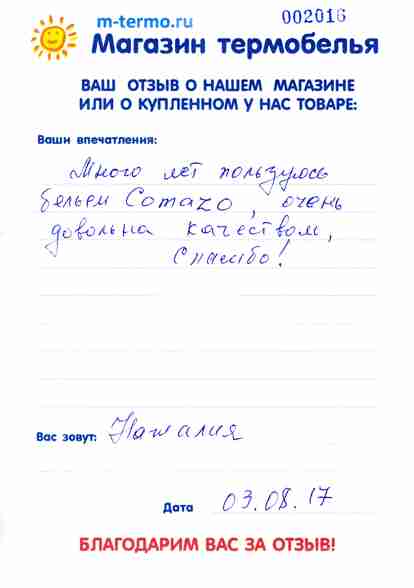 m-termo.ru
002016
Магазин термобелья
ВАШ ОТЗЫВ О НАШЕМ МАГАЗИНЕ
ИЛИ О КУПЛЕННОМ У НАС ТОВАРЕ:
Ваши впечатления:
Много лет пользуюсь
бельем Comazo, очень
довольна качеством,
Спасибо!
Вас зовут: Наталия
Дата 03.08.17
БЛАГОДАРИМ ВАС ЗА ОТЗЫВ!